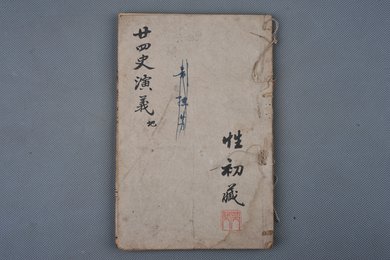 廿四史演義
地
性初藏